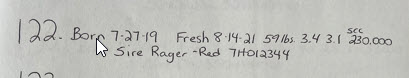 122. Born 7-27-19 Fresh 8-14-21 59lbs. 3.4 3.1 scc 230.000
Sire Rager-Red 7HO12344